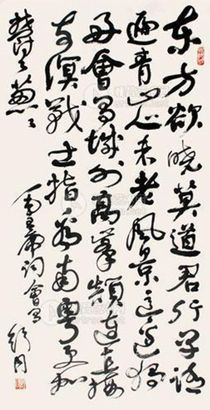 东方欲晓莫道君行早踏
遍青山人未老风景这边独
好會昌城外高峯颠连直接
东溟战士指看南粤更加
郁々葱々
毛主席词會昌 舒同